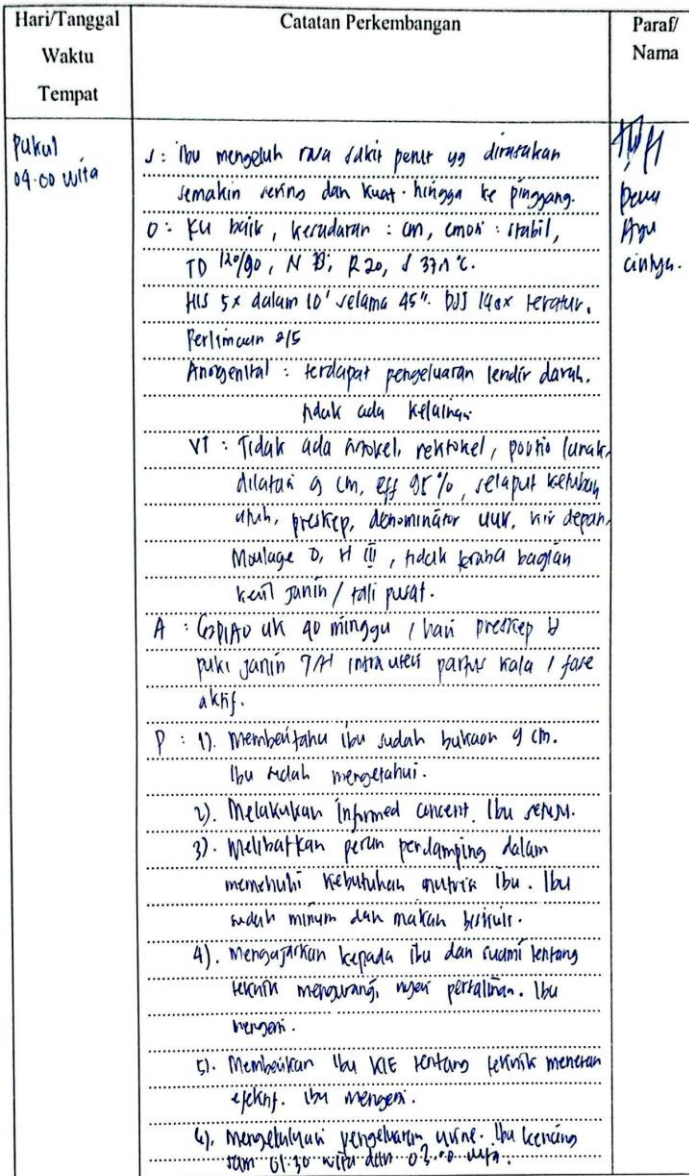 Hari/Tanggal
Waktu
Tempat
Catatan Perkembangan
Paraf/
Nama
Pukul
04.00 wita
S : Ibu mengeluh rasa sakit perut yg dirasakan
semakin sering dan kuat. hingga ke pinggang.
O : KU baik, kesadaran : cm, emosi : stabil,
TD 120/90, N R 20, S
HIS 5x dalam 10' selama 45". DJJ 140x teratur.
Perlimaan 2/5
Anogenital : terdapat pengeluaran lendir darah.
tidak ada kelainan
VT : Tidak ada rektokel, portio lunak,
dilatasi 9 cm, eff 95%, selaput ketuban
utuh, preskep, denominator UUK, kir depan,
Moulage 0, H III, tidak teraba bagian
kecil janin / tali pusat.
A : UK 40 minggu 1 hari preskep U
puki janin T/H intrauteri partus kala 1 fase
aktif.
P : 1). Memberitahu ibu sudah bukaan 9 cm.
Ibu sudah mengetahui.
2). Melakukan Informed concent. Ibu setuju.
3). Melibatkan peran pendamping dalam
memenuhi kebutuhan nutrisi ibu. Ibu
sudah minum dan makan biskuit.
4). mengajarkan kepada ibu dan suami tentang
teknik mengurangi nyeri persalinan. Ibu
mengerti.
5). Memberikan ibu KIE tentang teknik meneran
efektif. ibu mengerti.
6). pengeluaran urine. Ibu kencing
jam 01:30 wita dan 03.00 wita.
Dewa
Ayu
Cintya.